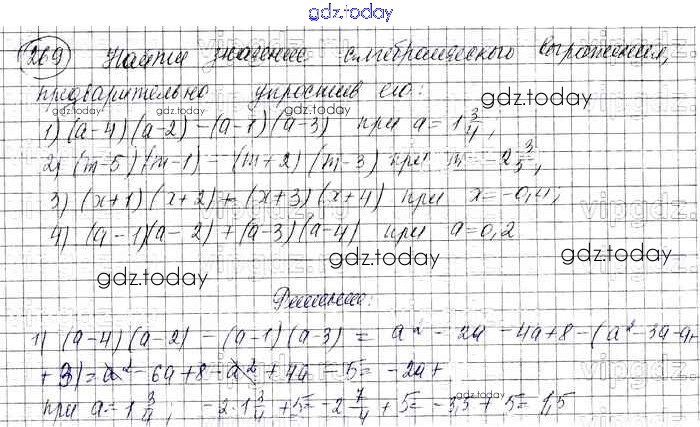 gdz.today
269 Найти значение алгебраического выражения,
предварительно упростив его:
gdz.today gdz.today gdz.today
1) (a-4)(a-2)-(a-1)(a-3) при a=1 3/4;
2) (m-5)(m-1)-(m+2)(m-3) при m=-2 3/5;
3) (x+1)(x+2)+(x+3)(x+4) при x=-0,4;
4) (a-1)(a-2)+(a-3)(a-4) при a=0,2
gdz.today gdz.today gdz.today
Решение:
1) (a-4)(a-2)-(a-1)(a-3)=a²-2a-4a+8-(a²-3a-a+
+3)=a²-6a+8-a²+4a-5=-2a+
при a=1 3/4, -2·1 3/4+5=-2 7/4+5=-3,5+5=1,5
gdz.today